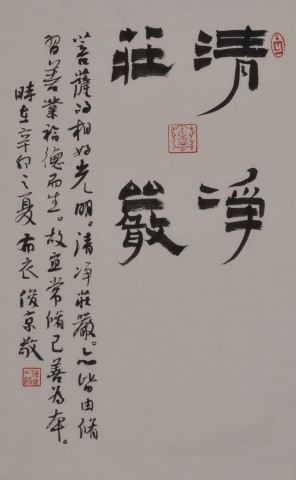 清净
莊嚴
菩薩的相好光明。清净莊嚴。亦皆由脩
習善業福德而生。故宜常脩己善為本。
時在辛卯之夏布衣俊京敬